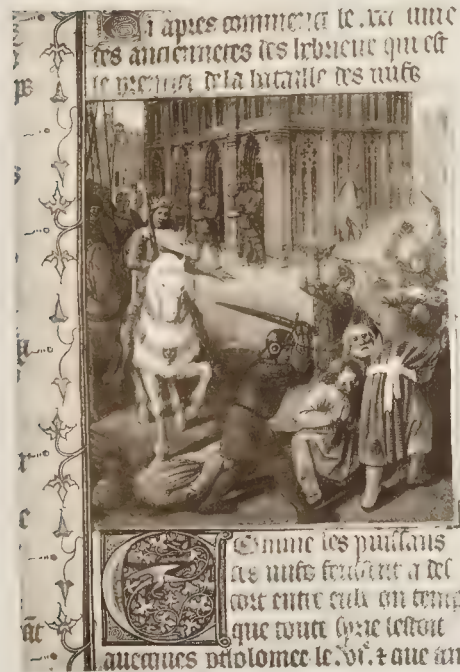 Ci apres commence le .xxi. liure
des anciennetes des hebrieux qui est
le premier de la bataille des iuifs
Comme les puissans
des iuifs feussent a des
cort entre eulx en temps
que toute syrie
ptholomee le .vi. z que an